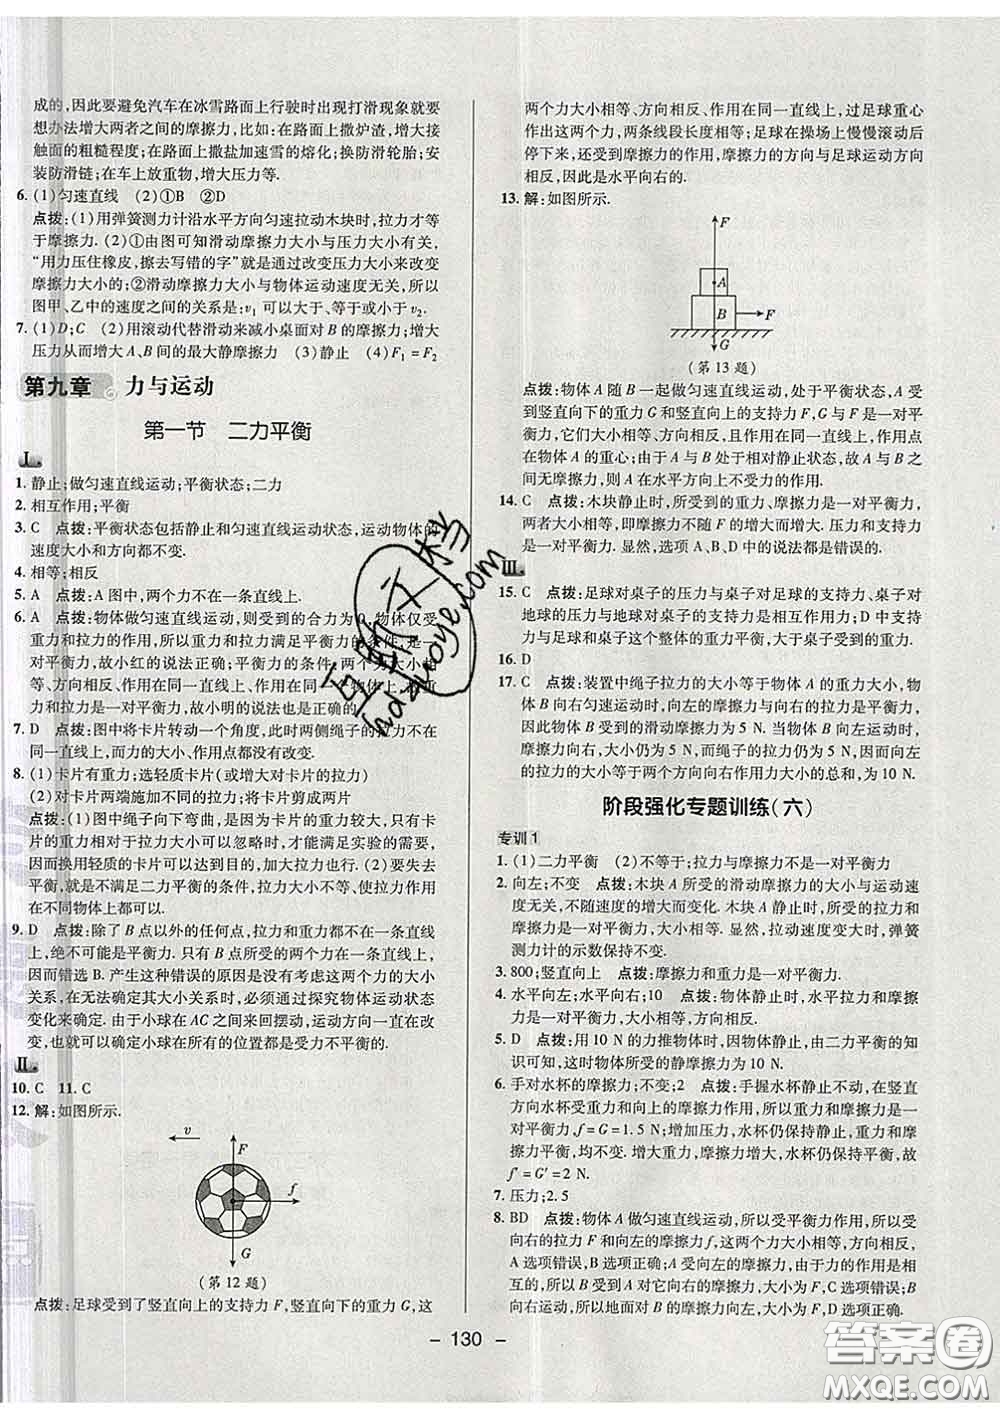 成的,因此要避免汽车在冰雪路面上行驶时出现打滑现象就要
想办法增大两者之间的摩擦力,比如:在路面上撒炉渣,增大接
触面的粗糙程度;在路面上撒盐加速雪的熔化;换防滑轮胎;安
装防滑链;在车上放重物,增大压力等.
6. (1)匀速直线 (2)①B ②D
点拨:(1)用弹簧测力计沿水平方向匀速拉动木块时,拉力才等
于摩擦力.(2)①由图可知滑动摩擦力大小与压力大小有关,
“用力压住橡皮,擦去写错的字”就是通过改变压力大小来改变
摩擦力大小的;②滑动摩擦力大小与物体运动速度无关,所以
图甲、乙中的速度之间的关系是:v₁ 可以大于、等于或小于 v₂.
7. (1)D;C (2)用滚动代替滑动来减小桌面对 B 的摩擦力;增大
压力从而增大 A、B 间的最大静摩擦力 (3)静止 (4)F₁=F₂
第九章 力与运动
第一节 二力平衡
Ⅰ.
1. 静止;做匀速直线运动;平衡状态;二力
2. 相互作用;平衡
3. C 点拨:平衡状态包括静止和匀速直线运动状态,运动物体的
速度大小和方向都不变.
4. 相等;相反
5. A 点拨:A 图中,两个力不在一条直线上.
6. A 点拨:物体做匀速直线运动,则受到的合力为 0,物体仅受
重力和拉力作用,所以重力和拉力满足平衡力的条件,是一对
平衡力,故小红的说法正确;平衡力的条件:两个力大小相
等、方向相反、作用在同一直线上、作用在同一物体上,故重
力和拉力是一对平衡力,故小明的说法也是正确的.
7. D 点拨:图中将卡片转动一个角度,此时两侧绳子的拉力不在
同一直线上,而力的大小、作用点都没有改变.
8. (1)卡片有重力;选轻质卡片(或增大对卡片的拉力)
(2)对卡片两端施加不同的拉力;将卡片剪成两片
点拨:(1)图中绳子向下弯曲,是因为卡片的重力较大,只有卡
片的重力相对于拉力大小可以忽略时,才能满足实验的需要,
因此换用轻质的卡片可以达到目的,加大拉力也行.(2)要失去
平衡,就是不满足二力平衡的条件,拉力大小不等,使拉力作用
在不同物体上都可以.
9. D 点拨:除了 B 点以外的任何点,拉力和重力都不在一条直线
上,绝不可能是平衡力.只有 B 点所受的两个力在一条直线上,
因而错选 B.产生这种错误的原因是没有考虑这两个力的大小
关系,在无法确定其大小关系时,必须通过探究物体运动状态
变化来确定.由于小球在 AC 之间来回摆动,运动方向一直在改
变,也就可以确定小球在所有的位置都是受力不平衡的.
Ⅱ.
10. C 11. C
12. 解:如图所示.
v
F
f
G
(第 12 题)
点拨:足球受到了竖直向上的支持力 F,竖直向下的重力 G,这
两个力大小相等、方向相反、作用在同一直线上,过足球重心
作出这两个力,两条线段长度相等;足球在操场上慢慢滚动后
停下来,还受到摩擦力的作用,摩擦力的方向与足球运动方向
相反,因此是水平向右的.
13. 解:如图所示.
F
A
B
F
G
(第 13 题)
点拨:物体 A 随 B 一起做匀速直线运动,处于平衡状态,A 受
到竖直向下的重力 G 和竖直向上的支持力 F,G 与 F 是一对平
衡力,它们大小相等、方向相反,且作用在同一直线上,作用点
都画在重心上;由于 A 与 B 处于相对静止状态,故 A 与 B 之
间无摩擦力,所以 A 在水平方向上不受力的作用.
14. C 点拨:木块静止时,所受到的重力、摩擦力是一对平衡力,
两者大小相等,即摩擦力不随 F 的增大而增大.压力和支持力
是一对平衡力.显然,选项 A、B、D 中的说法都是错误的.
Ⅲ.
15. C 点拨:足球对桌子的压力与桌子对足球的支持力、桌子对
地球的压力与地球对桌子的支持力是相互作用力;D 中支持
力与足球和桌子这个整体的重力平衡,大于桌子受到的重力.
16. D
17. C 点拨:装置中绳子拉力的大小等于物体 A 的重力大小,物
体 B 向右匀速运动时,向左的摩擦力与向右的拉力是平衡力,
因此物体 B 受到的滑动摩擦力为 5 N.当物体 B 向左运动时,
摩擦力向右,大小仍为 5 N,而绳子的拉力仍为 5 N,因而向左
的拉力的大小等于两个方向向右作用力大小的总和,为 10 N.
阶段强化专题训练(六)
专训 1
1. (1)二力平衡 (2)不等于;拉力与摩擦力不是一对平衡力
2. 向左;不变 点拨:木块 A 所受的滑动摩擦力的大小与运动速
度无关,不随速度的增大而变化.木块 A 静止时,所受的拉力和
摩擦力是一对平衡力,大小相等.显然,拉动速度变大时,弹簧
测力计的示数保持不变.
3. 800;竖直向上 点拨:摩擦力和重力是一对平衡力.
4. 水平向左;水平向右;10 点拨:物体静止时,水平拉力和摩擦
力是一对平衡力,大小相等,方向相反.
5. D 点拨:用 10 N 的力推物体时,物体静止,由二力平衡的知
识可知,这时物体所受的静摩擦力为 10 N.
6. 手对水杯的摩擦力;不变;2 点拨:手握水杯静止不动,在竖直
方向水杯受重力和向上的摩擦力作用,所以重力和摩擦力是一
对平衡力,f=G=1.5 N;增加压力,水杯仍保持静止,重力和摩
擦力平衡,均不变;向水杯中加水,重力变大,水杯仍静止,所以
f′=G′=2 N.
7. 压力;2.5
8. BD 点拨:物体 A 做匀速直线运动,所以受平衡力作用,所以受
向右的拉力 F 和向左的摩擦力 f,而这两个力是一对平衡力,
A 选项错误,B 选项正确;A 受向左的摩擦力,由于力的作用是相
互的,所以 B 受到 A 对它向右的摩擦力,大小为 F,C 选项错误;B 有
向右运动,所以地面对 B 的摩擦力向左,大小为 F,D 选项正确.
- 130 -
答案圈
MXQE.COM